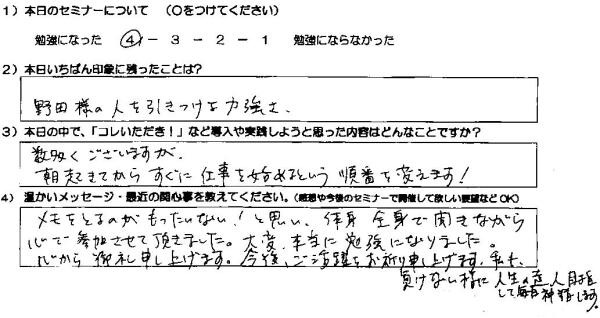 1）本日のセミナーについて （〇をつけてください）
勉強になった ④ - 3 - 2 - 1 勉強にならなかった
2）本日いちばん印象に残ったことは？
野田様の人を引きつける力強さ、
3）本日の中で、「コレいただき！」など導入や実践しようと思った内容はどんなことですか？
数多くございますが、
朝起きてからすぐに仕事を始めるという順番を変えます！
4）温かいメッセージ・最近の関心事を教えてください。（感想や今後のセミナーで開催して欲しい要望などOK）
メモをとるのがもったいない！と思い、体身全身で聞きながら
心で参加させて頂きました。大変、本当に勉強になりました。
心から御礼申し上げます。今後、ご活躍をお祈り申し上げます。私も、
負けない様に人生の達人目指
して毎日神 します。